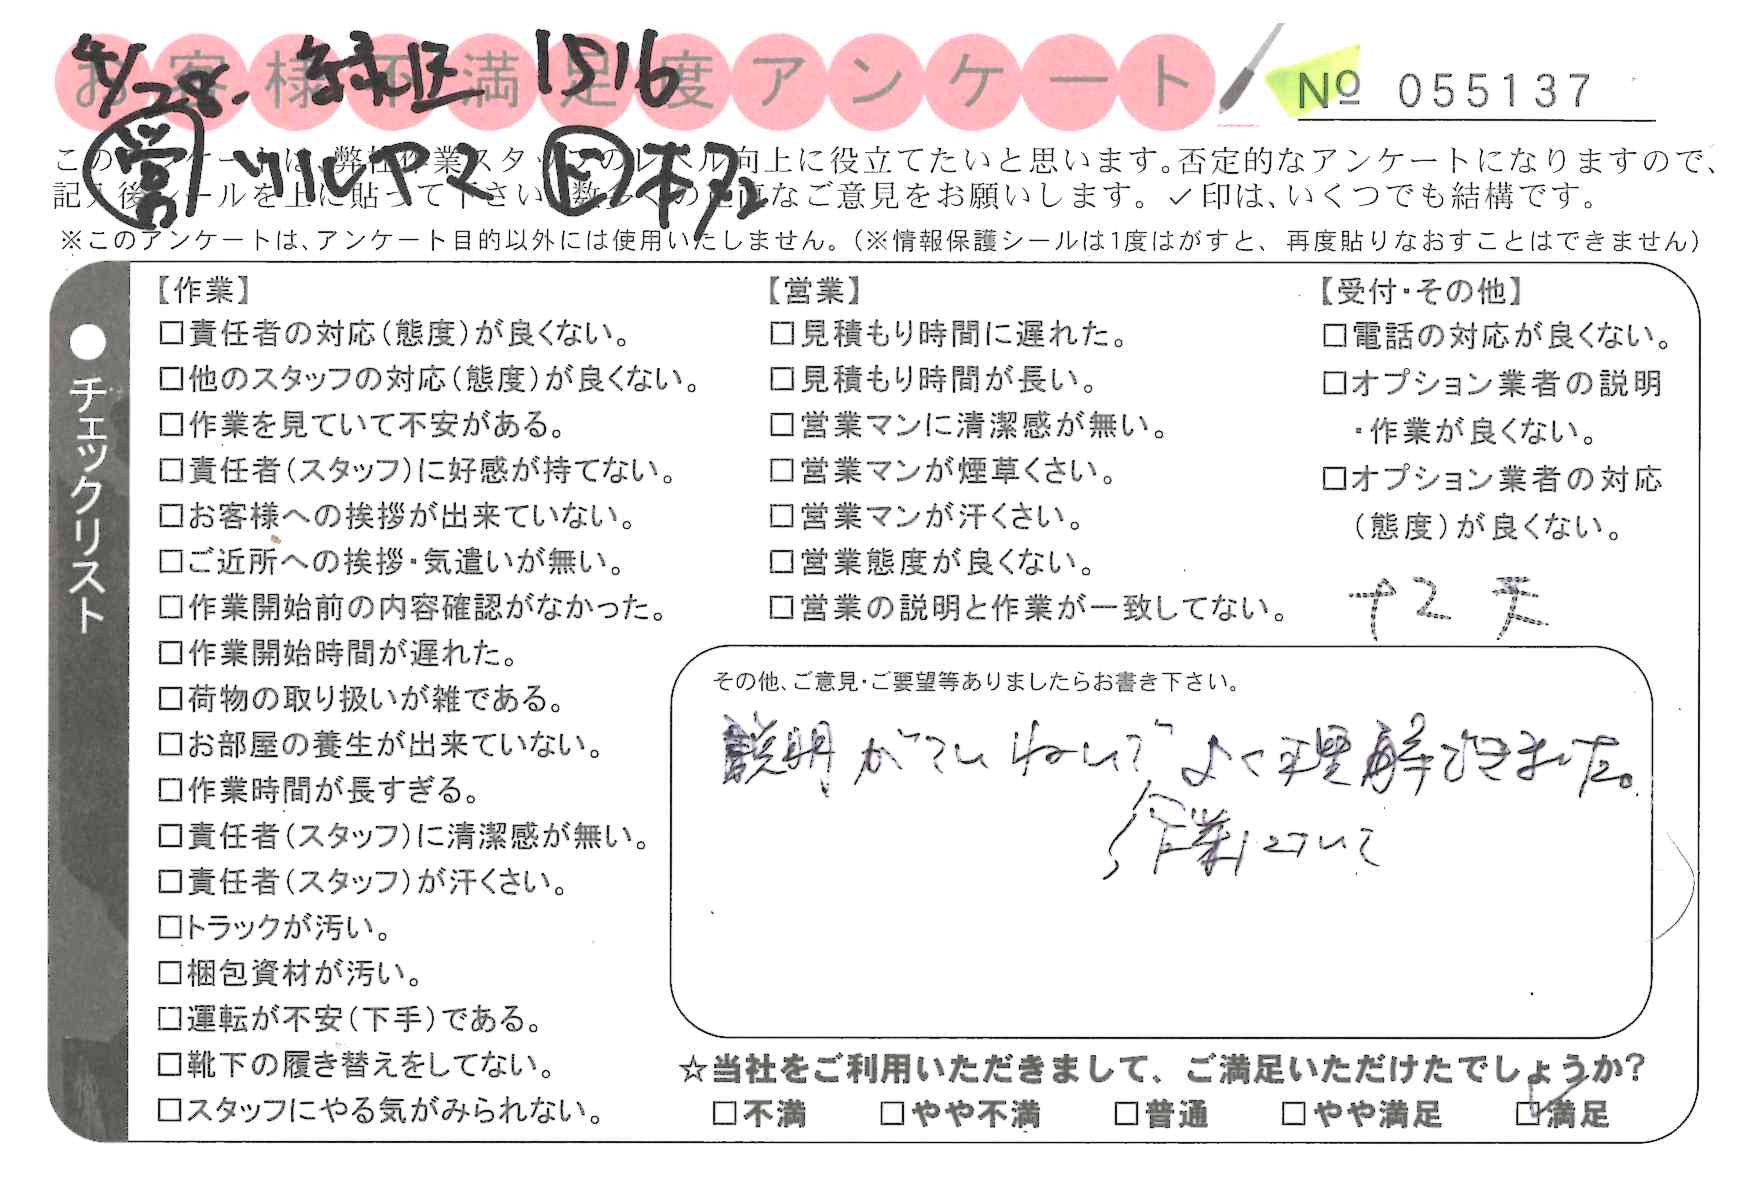 お客様不満足度アンケート
4/28. 緑区 1516
№ 055137
営 ツルヤマ
このアンケートは、弊社作業スタッフのレベル向上に役立てたいと思います。否定的なアンケートになりますので、
記入後シールを上に貼って下さい。数多くの正直なご意見をお願いします。✓印は、いくつでも結構です。
※このアンケートは、アンケート目的以外には使用いたしません。(※情報保護シールは1度はがすと、再度貼りなおすことはできません)
●チェックリスト
【作業】
□責任者の対応(態度)が良くない。
□他のスタッフの対応(態度)が良くない。
□作業を見ていて不安がある。
□責任者(スタッフ)に好感が持てない。
□お客様への挨拶が出来ていない。
□ご近所への挨拶・気遣いが無い。
□作業開始前の内容確認がなかった。
□作業開始時間が遅れた。
□荷物の取り扱いが雑である。
□お部屋の養生が出来ていない。
□作業時間が長すぎる。
□責任者(スタッフ)に清潔感が無い。
□責任者(スタッフ)が汗くさい。
□トラックが汚い。
□梱包資材が汚い。
□運転が不安(下手)である。
□靴下の履き替えをしてない。
□スタッフにやる気がみられない。
【営業】
□見積もり時間に遅れた。
□見積もり時間が長い。
□営業マンに清潔感が無い。
□営業マンが煙草くさい。
□営業マンが汗くさい。
□営業態度が良くない。
□営業の説明と作業が一致してない。
【受付・その他】
□電話の対応が良くない。
□オプション業者の説明
・作業が良くない。
□オプション業者の対応
(態度)が良くない。
その他、ご意見・ご要望等ありましたらお書き下さい。
説明がていねいでよく理解できました。
作業について
☆当社をご利用いただきまして、ご満足いただけたでしょうか?
□不満 □やや不満 □普通 □やや満足 ☑満足